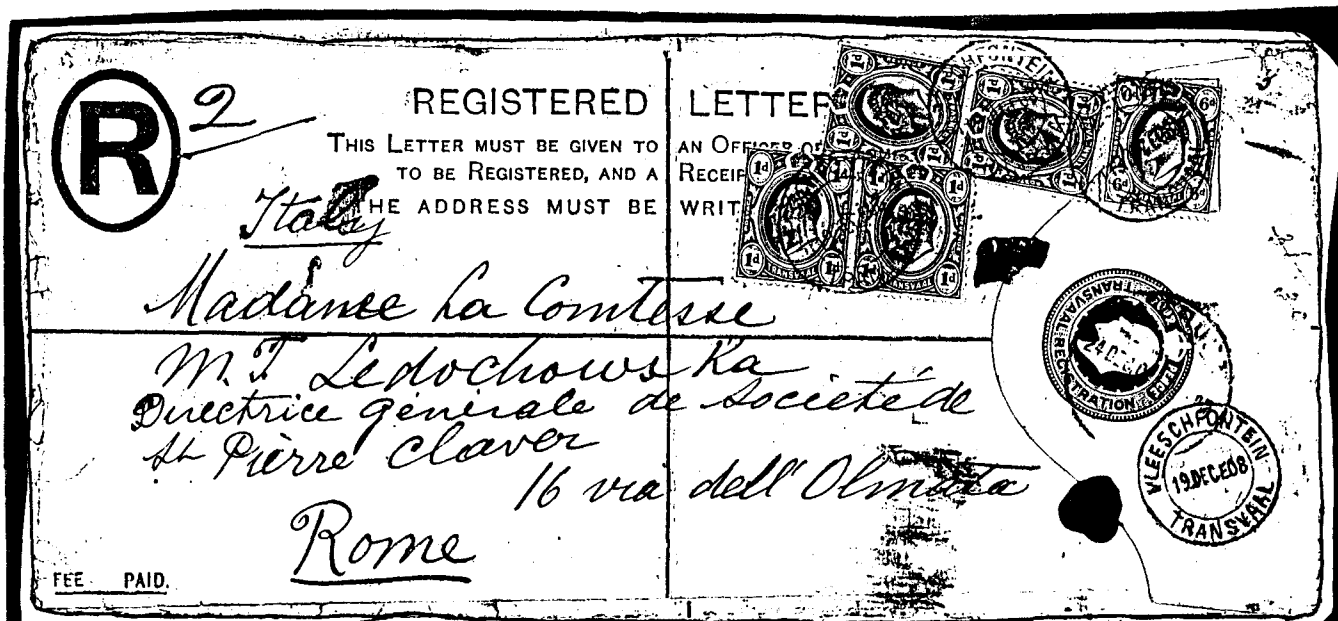 R 2
REGISTERED LETTER
THIS LETTER MUST BE GIVEN TO AN OFFICER OF
TO BE REGISTERED, AND A RECEIP
THE ADDRESS MUST BE WRIT
Italy
Madame La Comtesse
M. T. Ledochowska
Directrice générale de Société de
St Pièrre Claver
16 via dell' Olmata
Rome
FEE PAID.
1d 1d 1d 1d
1d 1d
6d 6d
TRANSVAAL
1d 1d 1d 1d
TRANSVAAL TRANSVAAL
TRANSVAAL REGISTRATION
VLEESCHFONTEIN
19 DEC 08
TRANSVAAL